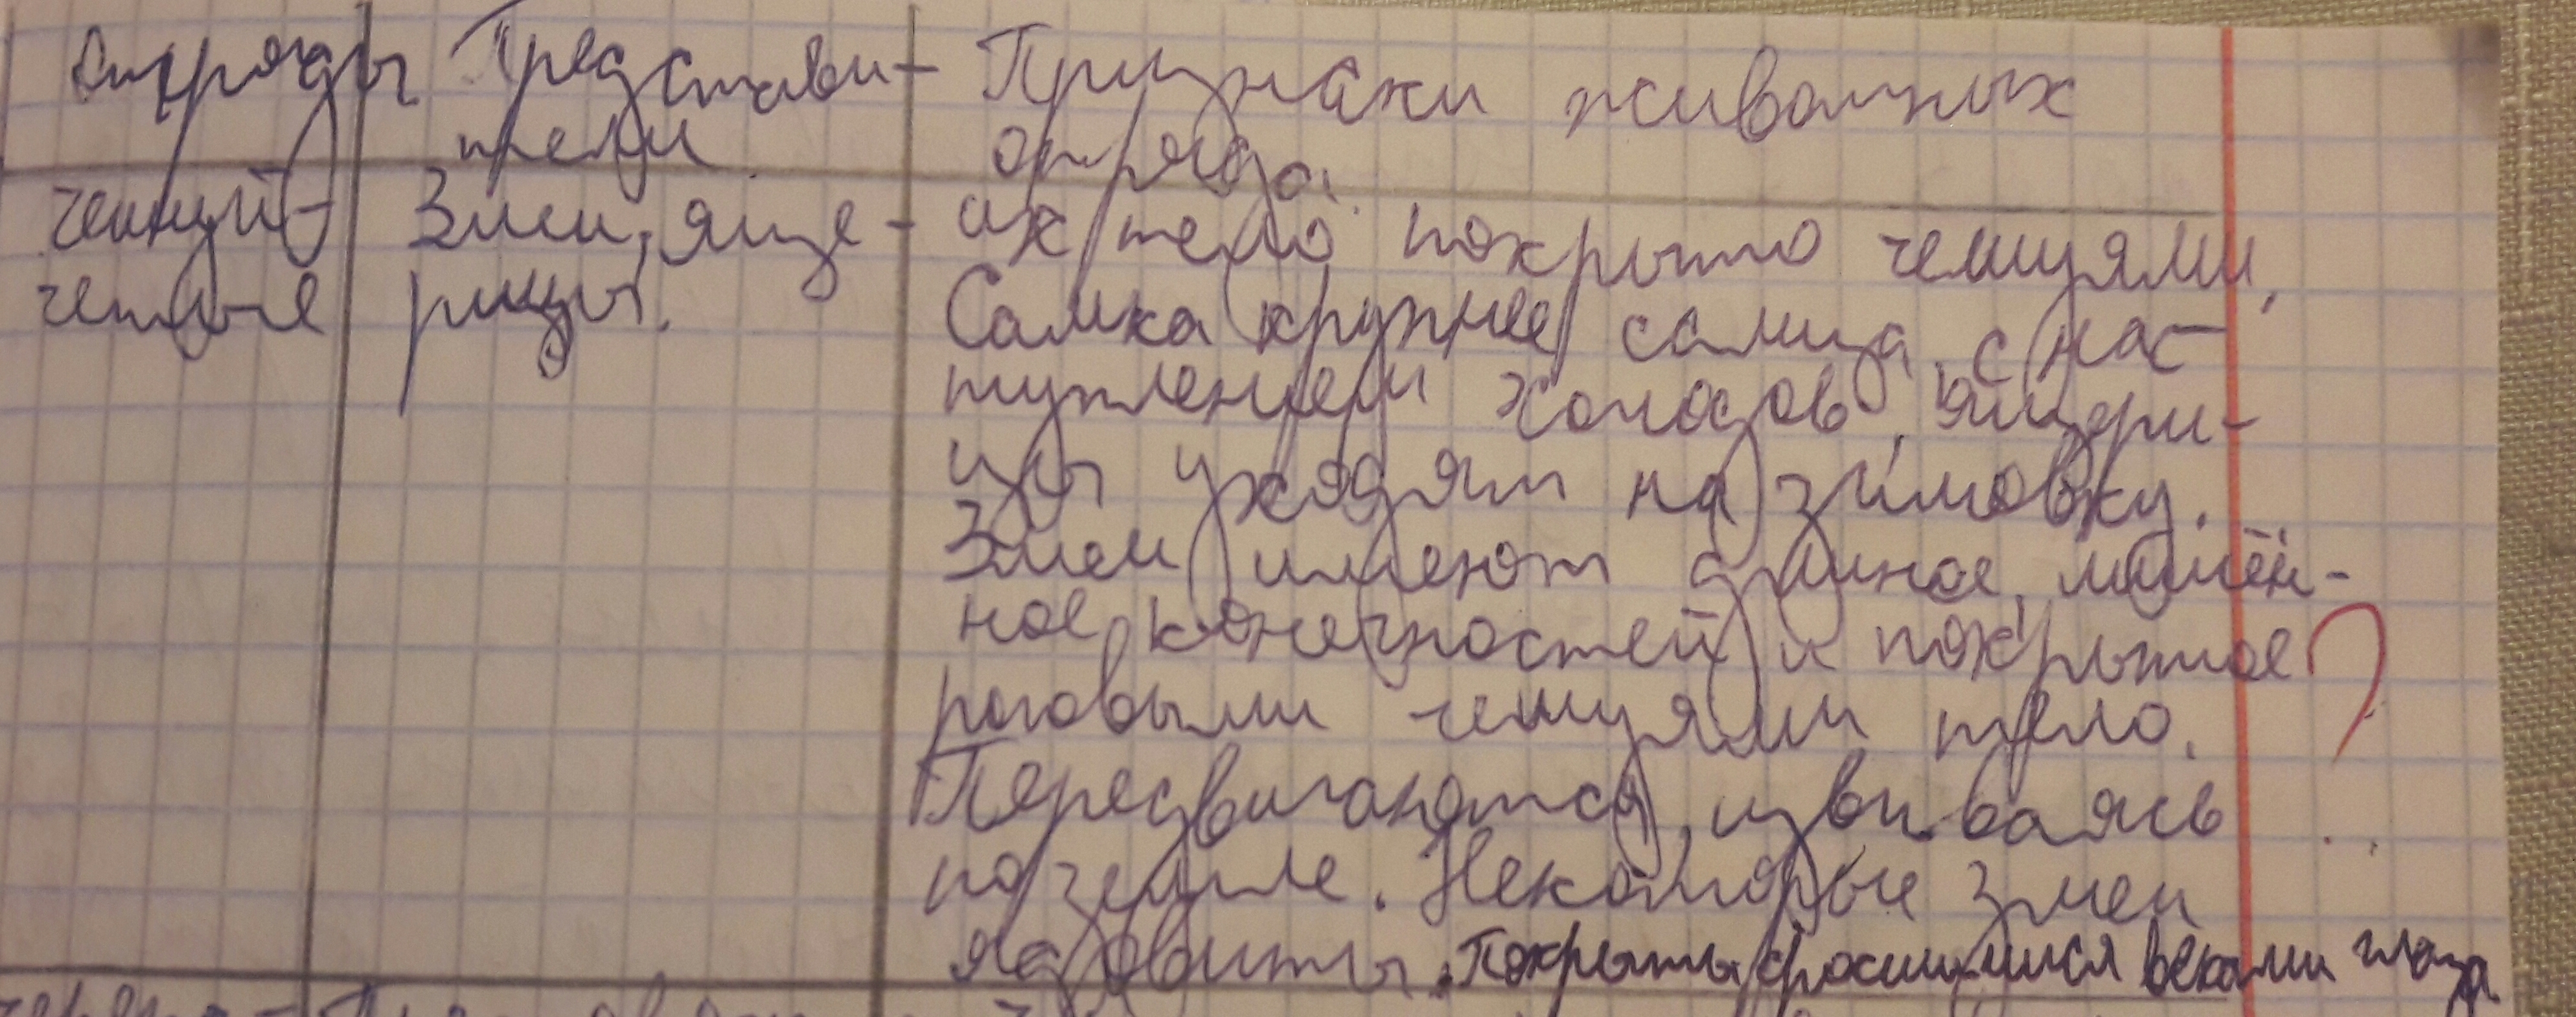 Отряды Представи- Признаки животных
тели отряда.
Чешуй- Змеи, яще- их тело покрыто чешуями,
чатые рицы. Самка крупнее самца, с нас-
туплением холодов, ящери-
цы уходят на зимовку.
Змеи имеют длиное, лишён-
ное конечностей и покрытое ?
роговыми чешуями тело.
Передвигаются, извиваясь
по земле. Некоторые змеи
ядовиты. Покрыты сросшимися веками глаза